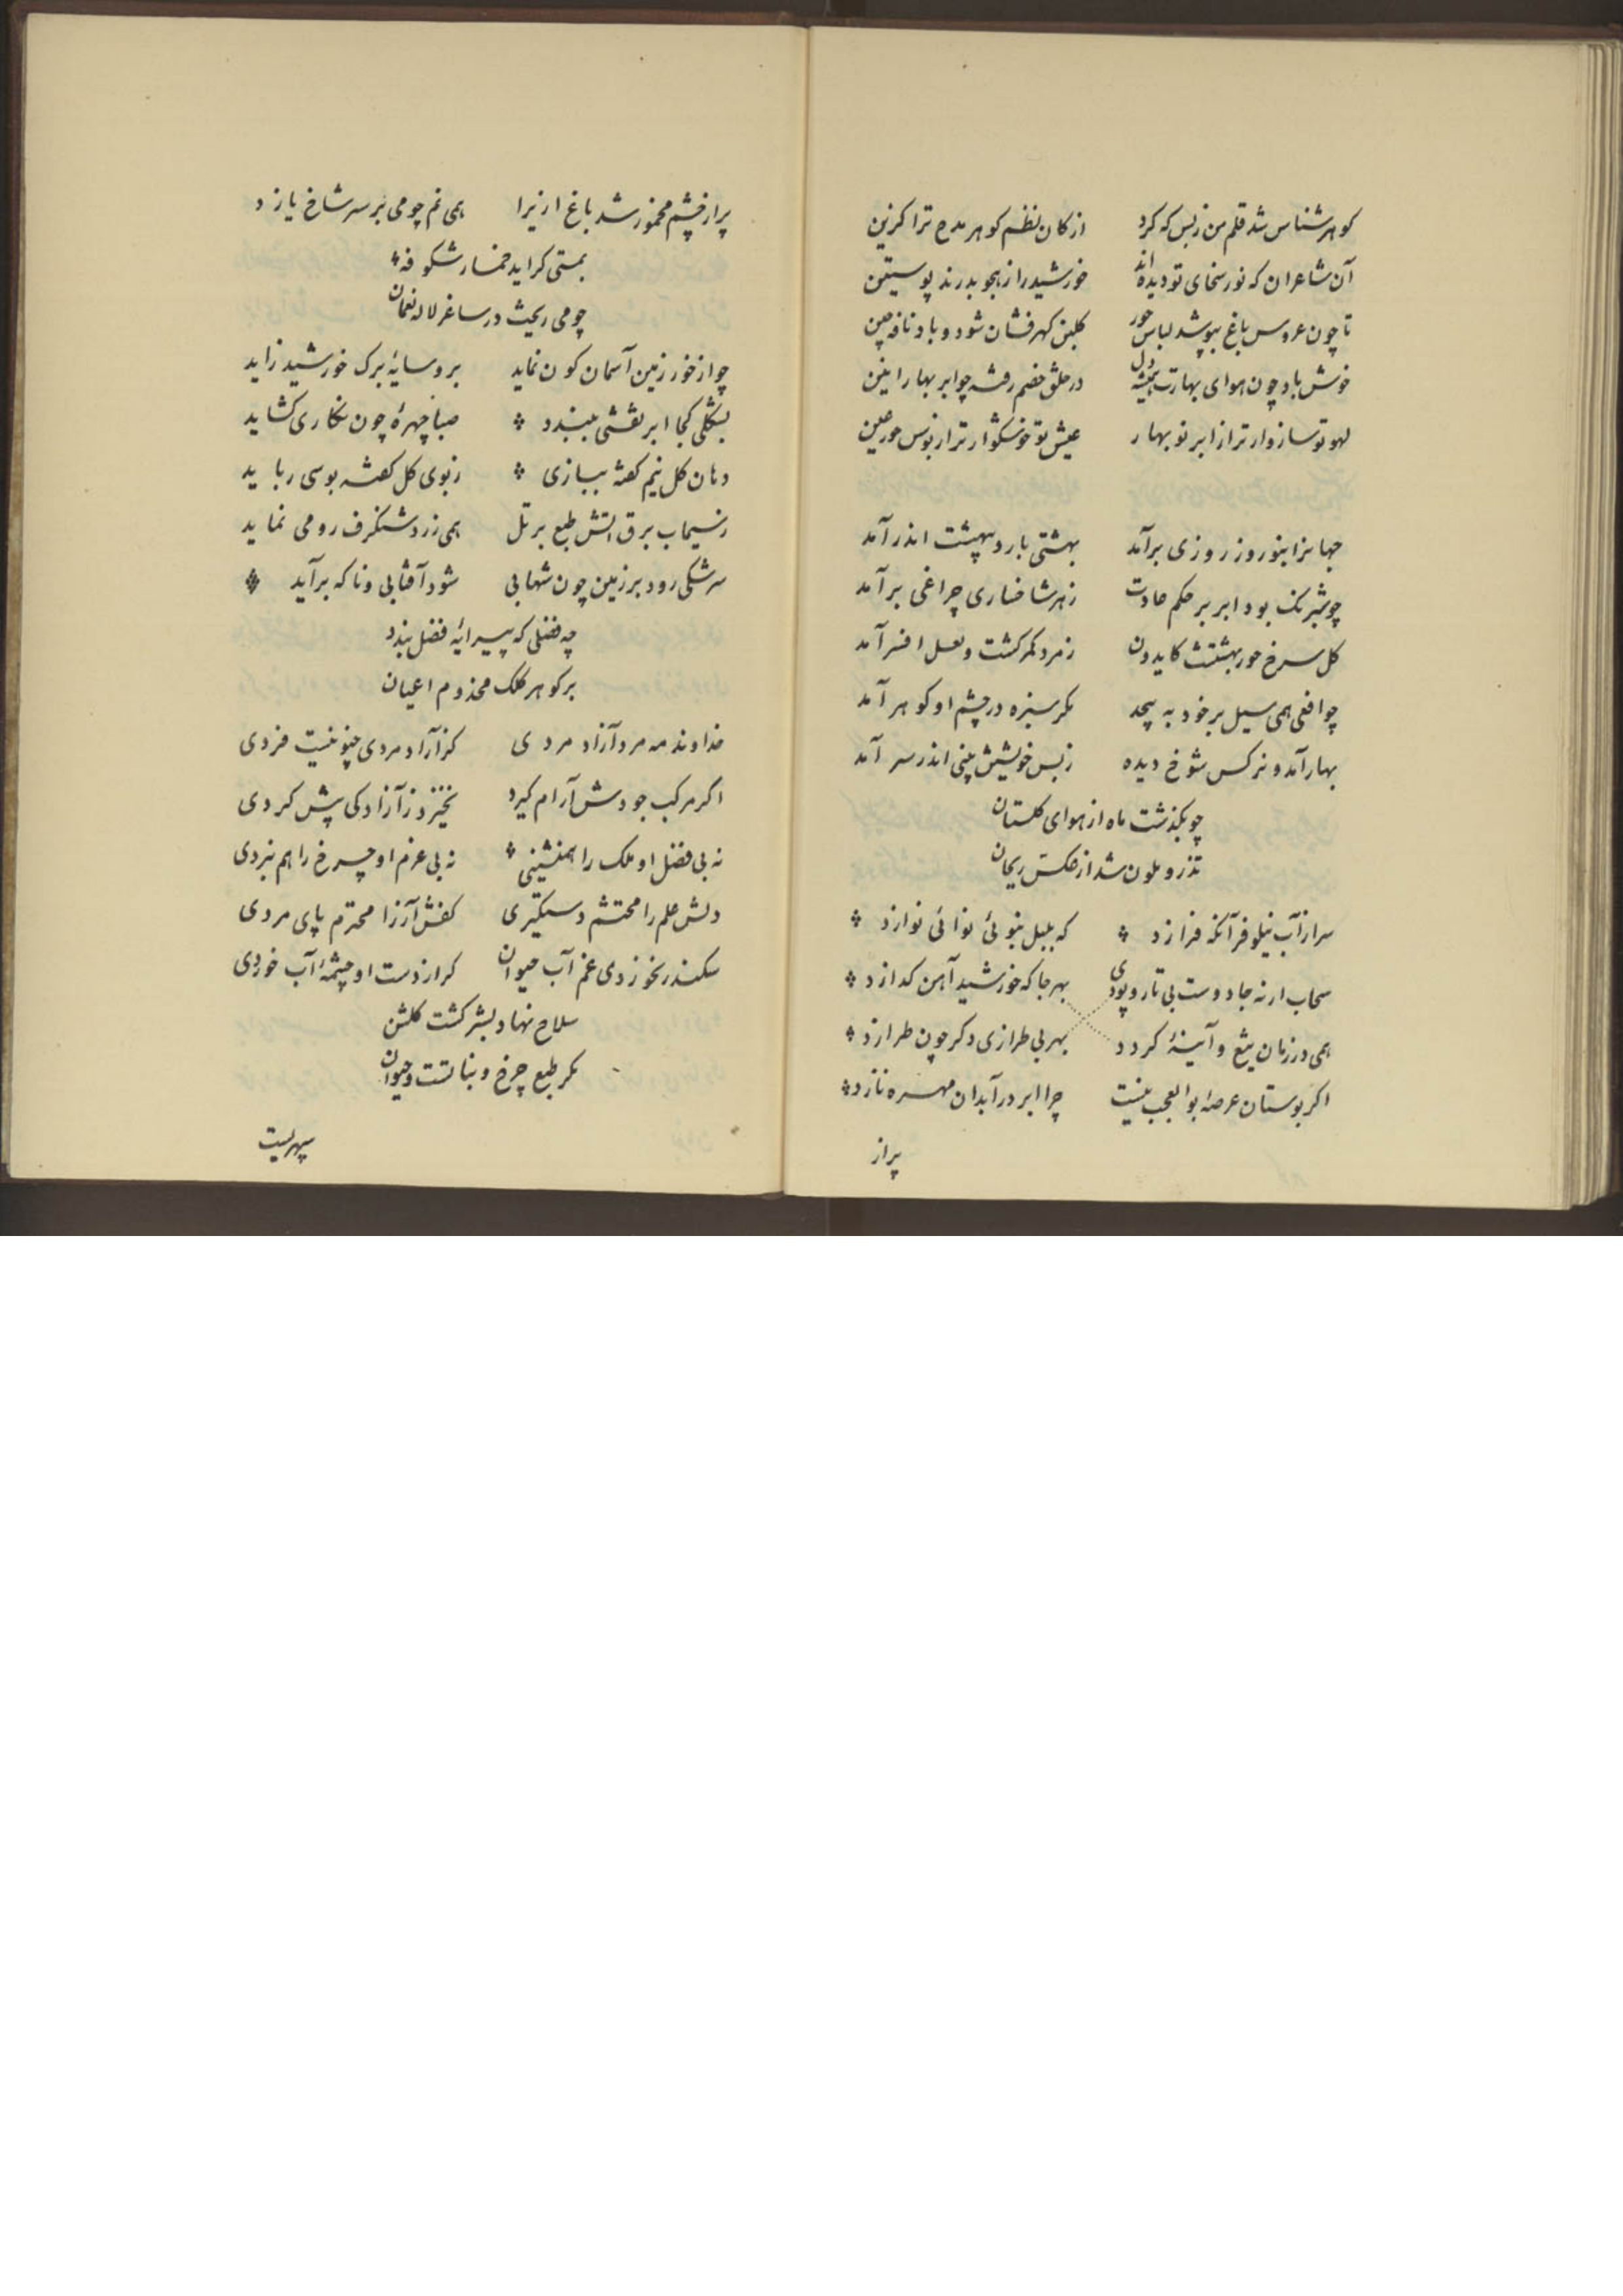 کوهرشناس شد قلم من زبس که کرد از کان نظم کوهر مدح ترا کزین
آن شاعران که نور سخای تو دیده اند خورشید را ز هجو بدرند پوستین
تا چون عروس باغ بپوشد لباس حور کلبن کهرفشان شود و باد نافه چین
خوش باد چون هوای بهارت همیشه دل در حلق خصم رفته چو ابر بهار انین
لهو تو سازوارتر از ابر نوبهار عیش تو خوشکوارتر از بوس حور عین
جهانرا بنوروز روزی برآمد بهشتی بارد بهشت اندر آمد
چو شبرنک بود ابر بر حکم عادت ز هر شاخساری چراغی برآمد
کل سرخ حور بهشتست کایدون زمرد کمر کشت و لعل افسر آمد
چو افعی همی سیل بر خود به پیچد مکر سبزه در چشم او کوهر آمد
بهار آمد و نرکس شوخ دیده ز بس خویشتن بینی اندر سر آمد
چو بکذشت ماه از هوای کلستان
تذرو ملون شد از عکس ریحان
سر از آب نیلوفر آنکه فرازد که بلبل بنوئی نوائی نوازد
سحاب ار نه جادوست بی تار و پودی بهرجا که خورشید آهن کدازد
همی در زمان تیغ و آیینهٔ کردد بهر بی طرازی دکر چون طرازد
اکر بوستان عرصهٔ بوالعجب نیست چرا ابر در آبدان مهره نازد
پر از
پر از چشم مخمور شد باغ ازیرا همی نم چو می بر سر شاخ یازد
بمستی کراید خمار شکوفه
چو می ریخت در ساغر لاله نعمان
چو از خور زمین آسمان کون نماید برو سایهٔ برک خورشید زاید
بشکلی کجا ابر نقشی ببندد صبا چهرهٔ چون نکاری کشاید
دهان کل نیم کفته ببازی ز بوی کل کفته بوسی رباید
ز سیماب برق آتش طبع بر تل همی زرد شنکرف رومی نماید
سرشکی رود بر زمین چون شهابی شود آفتابی و ناکه برآید
چه فضلی که پیرایهٔ فضل بندد
بر کوهر کلک مخدوم اعیان
خداوند مه مرد آزاد مردی کز آزاد مردی چنو نیست فردی
اکر مرکب جودش آرام کیرد نخیزد ز آزادکی پیش کردی
نه بی فضل او ملک را همنشینی نه بی عزم او چرخ را هم نبردی
دلش علم را محتشم دستکیری کفش آز را محترم پای مردی
سکندر نخوردی غم آب حیوان کر از دست او چشمهٔ آب خوردی
سلاح نهاد بشر کشت کلشن
مکر طبع چرخ و نباتست و حیوان
سپهریست